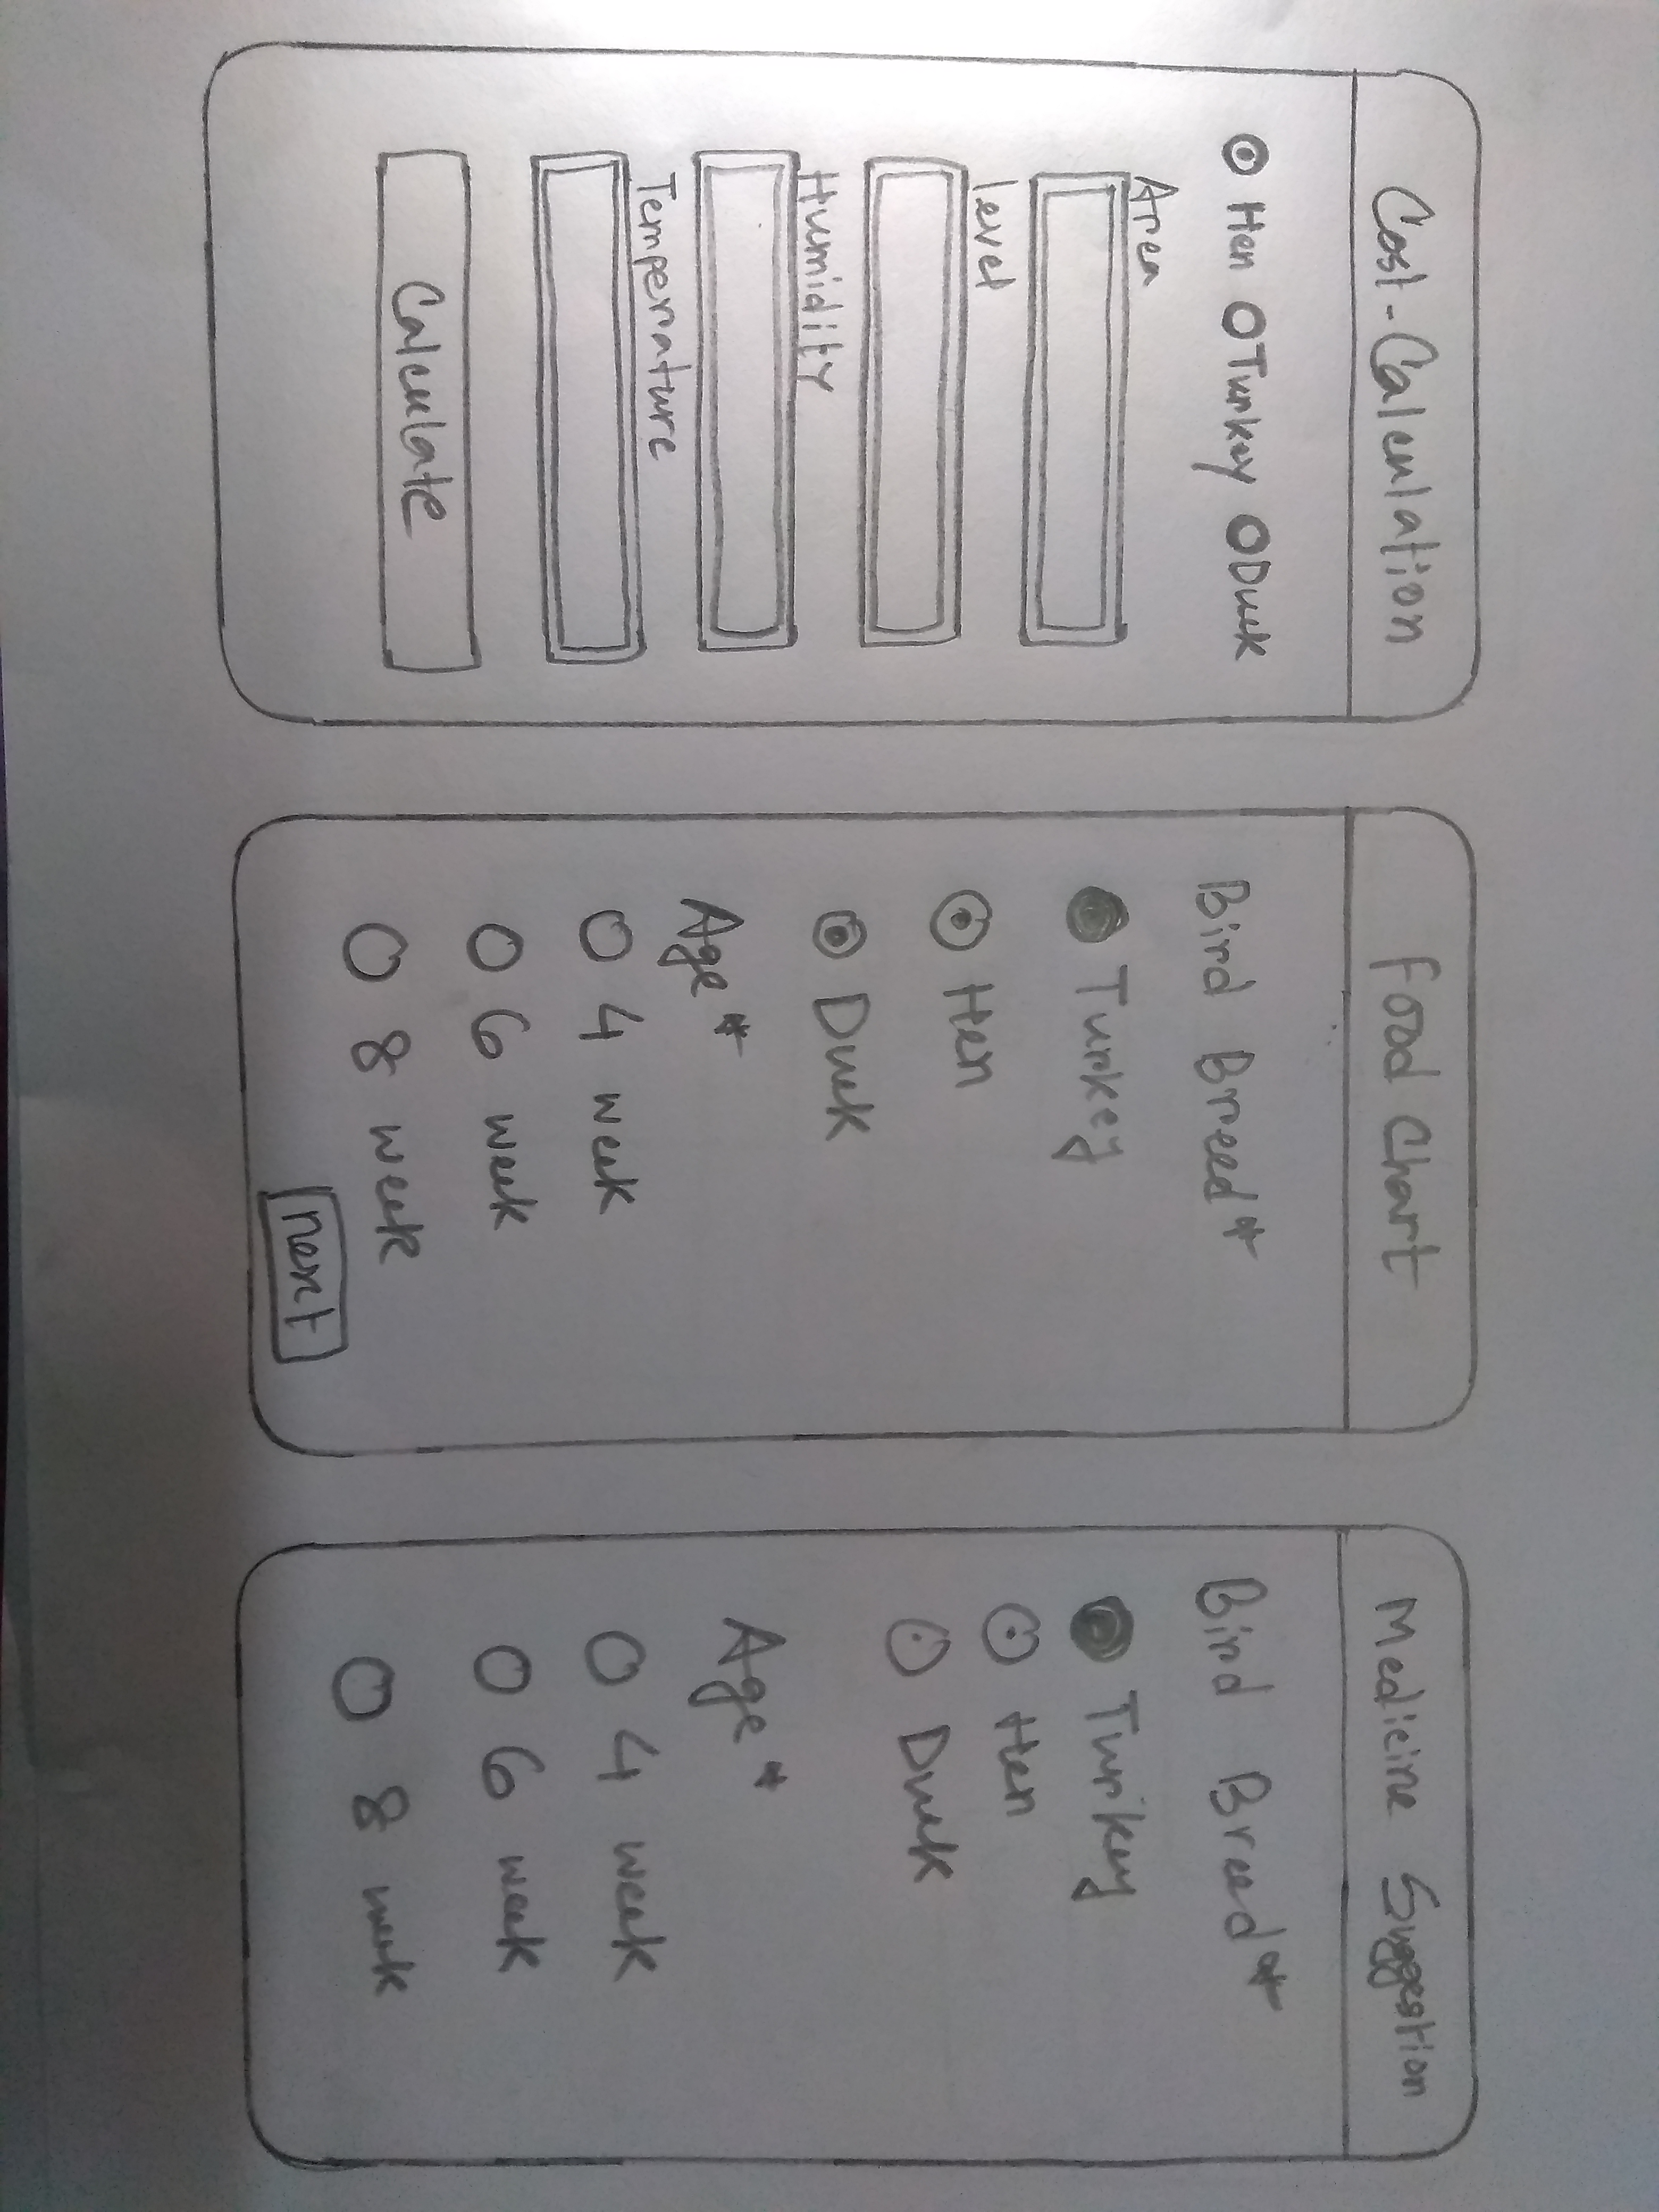 Cost-Calculation
Hen Turkey Duck
Area
level
Humidity
Temperature
Calculate
Food Chart
Bird Breed*
Turkey
Hen
Duck
Age *
4 week
6 week
8 week
next
Medicine Suggestion
Bird Breed*
Turkey
Hen
Duck
Age *
4 week
6 week
8 week